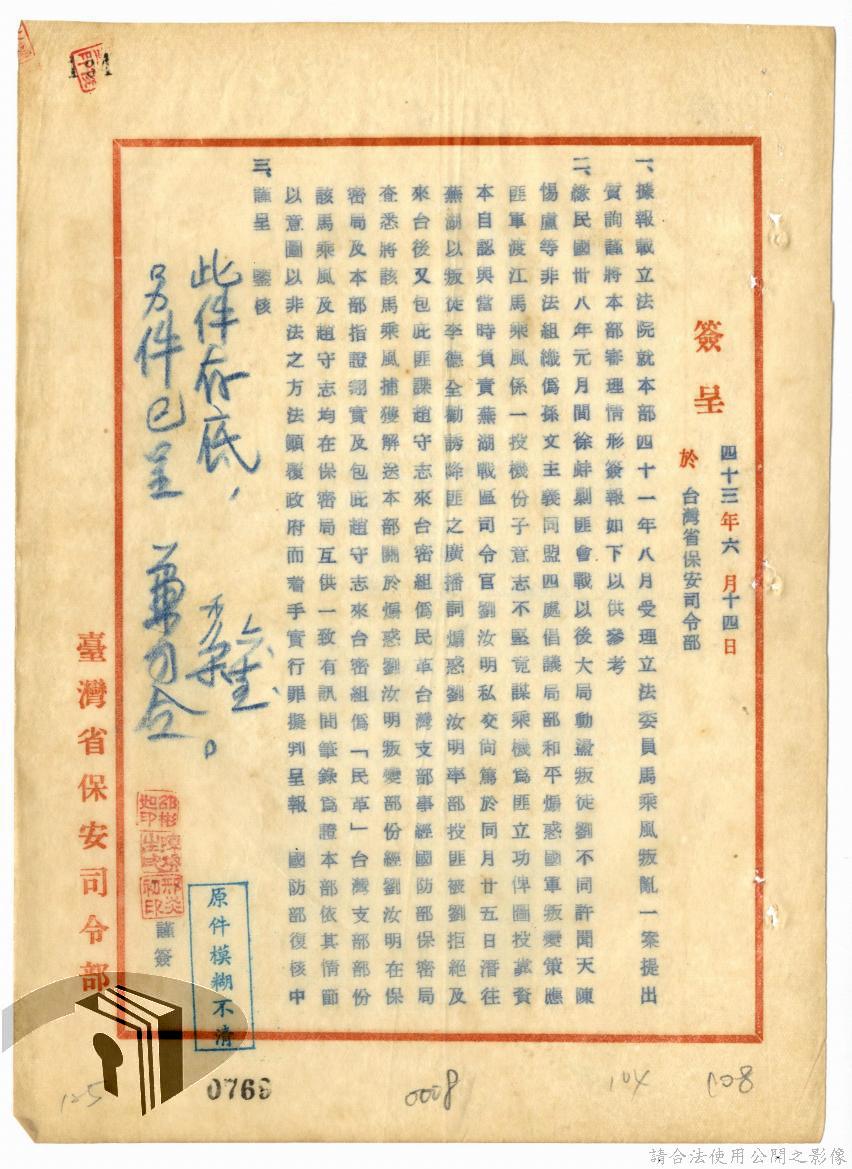 簽呈
四十三年六月十四日
於台灣省保安司令部
一、據報載立法院就本部四十一年八月受理立法委員馬乘風叛亂一案提出
質詢謹將本部審理情形簽報如下以供參考
二、緣民國卅八年元月間徐蚌剿匪會戰以後大局動盪叛徒劉不同許聞天陳
惕盧等非法組織偽孫文主義同盟四處倡議局部和平煽惑國軍叛變策應
匪軍渡江馬乘風係一投機份子意志不堅竟謀乘機為匪立功俾圖投靠資
本自認與當時負責蕪湖戰區司令官劉汝明私交尚篤於同月廿五日潛往
蕪湖以叛徒李德全勸誘降匪之廣播詞煽惑劉汝明率部投匪被劉拒絕及
來台後又包庇匪諜趙守志來台密組偽民革台灣支部事經國防部保密局
查悉將該馬乘風捕獲解送本部關於煽惑劉汝明叛變部份經劉汝明在保
密局及本部指證翔實及包庇趙守志來台密組偽「民革」台灣支部部份
該馬乘風及趙守志均在保密局互供一致有訊問筆錄為證本部依其情節
以意圖以非法之方法顛覆政府而着手實行罪擬判呈報 國防部復核中
三、謹呈 鑒核
此件存底，
另件已呈 兼司令。
謹簽
臺灣省保安司令部
原件模糊不清
0769
0008
104
108
125
請合法使用公開之影像